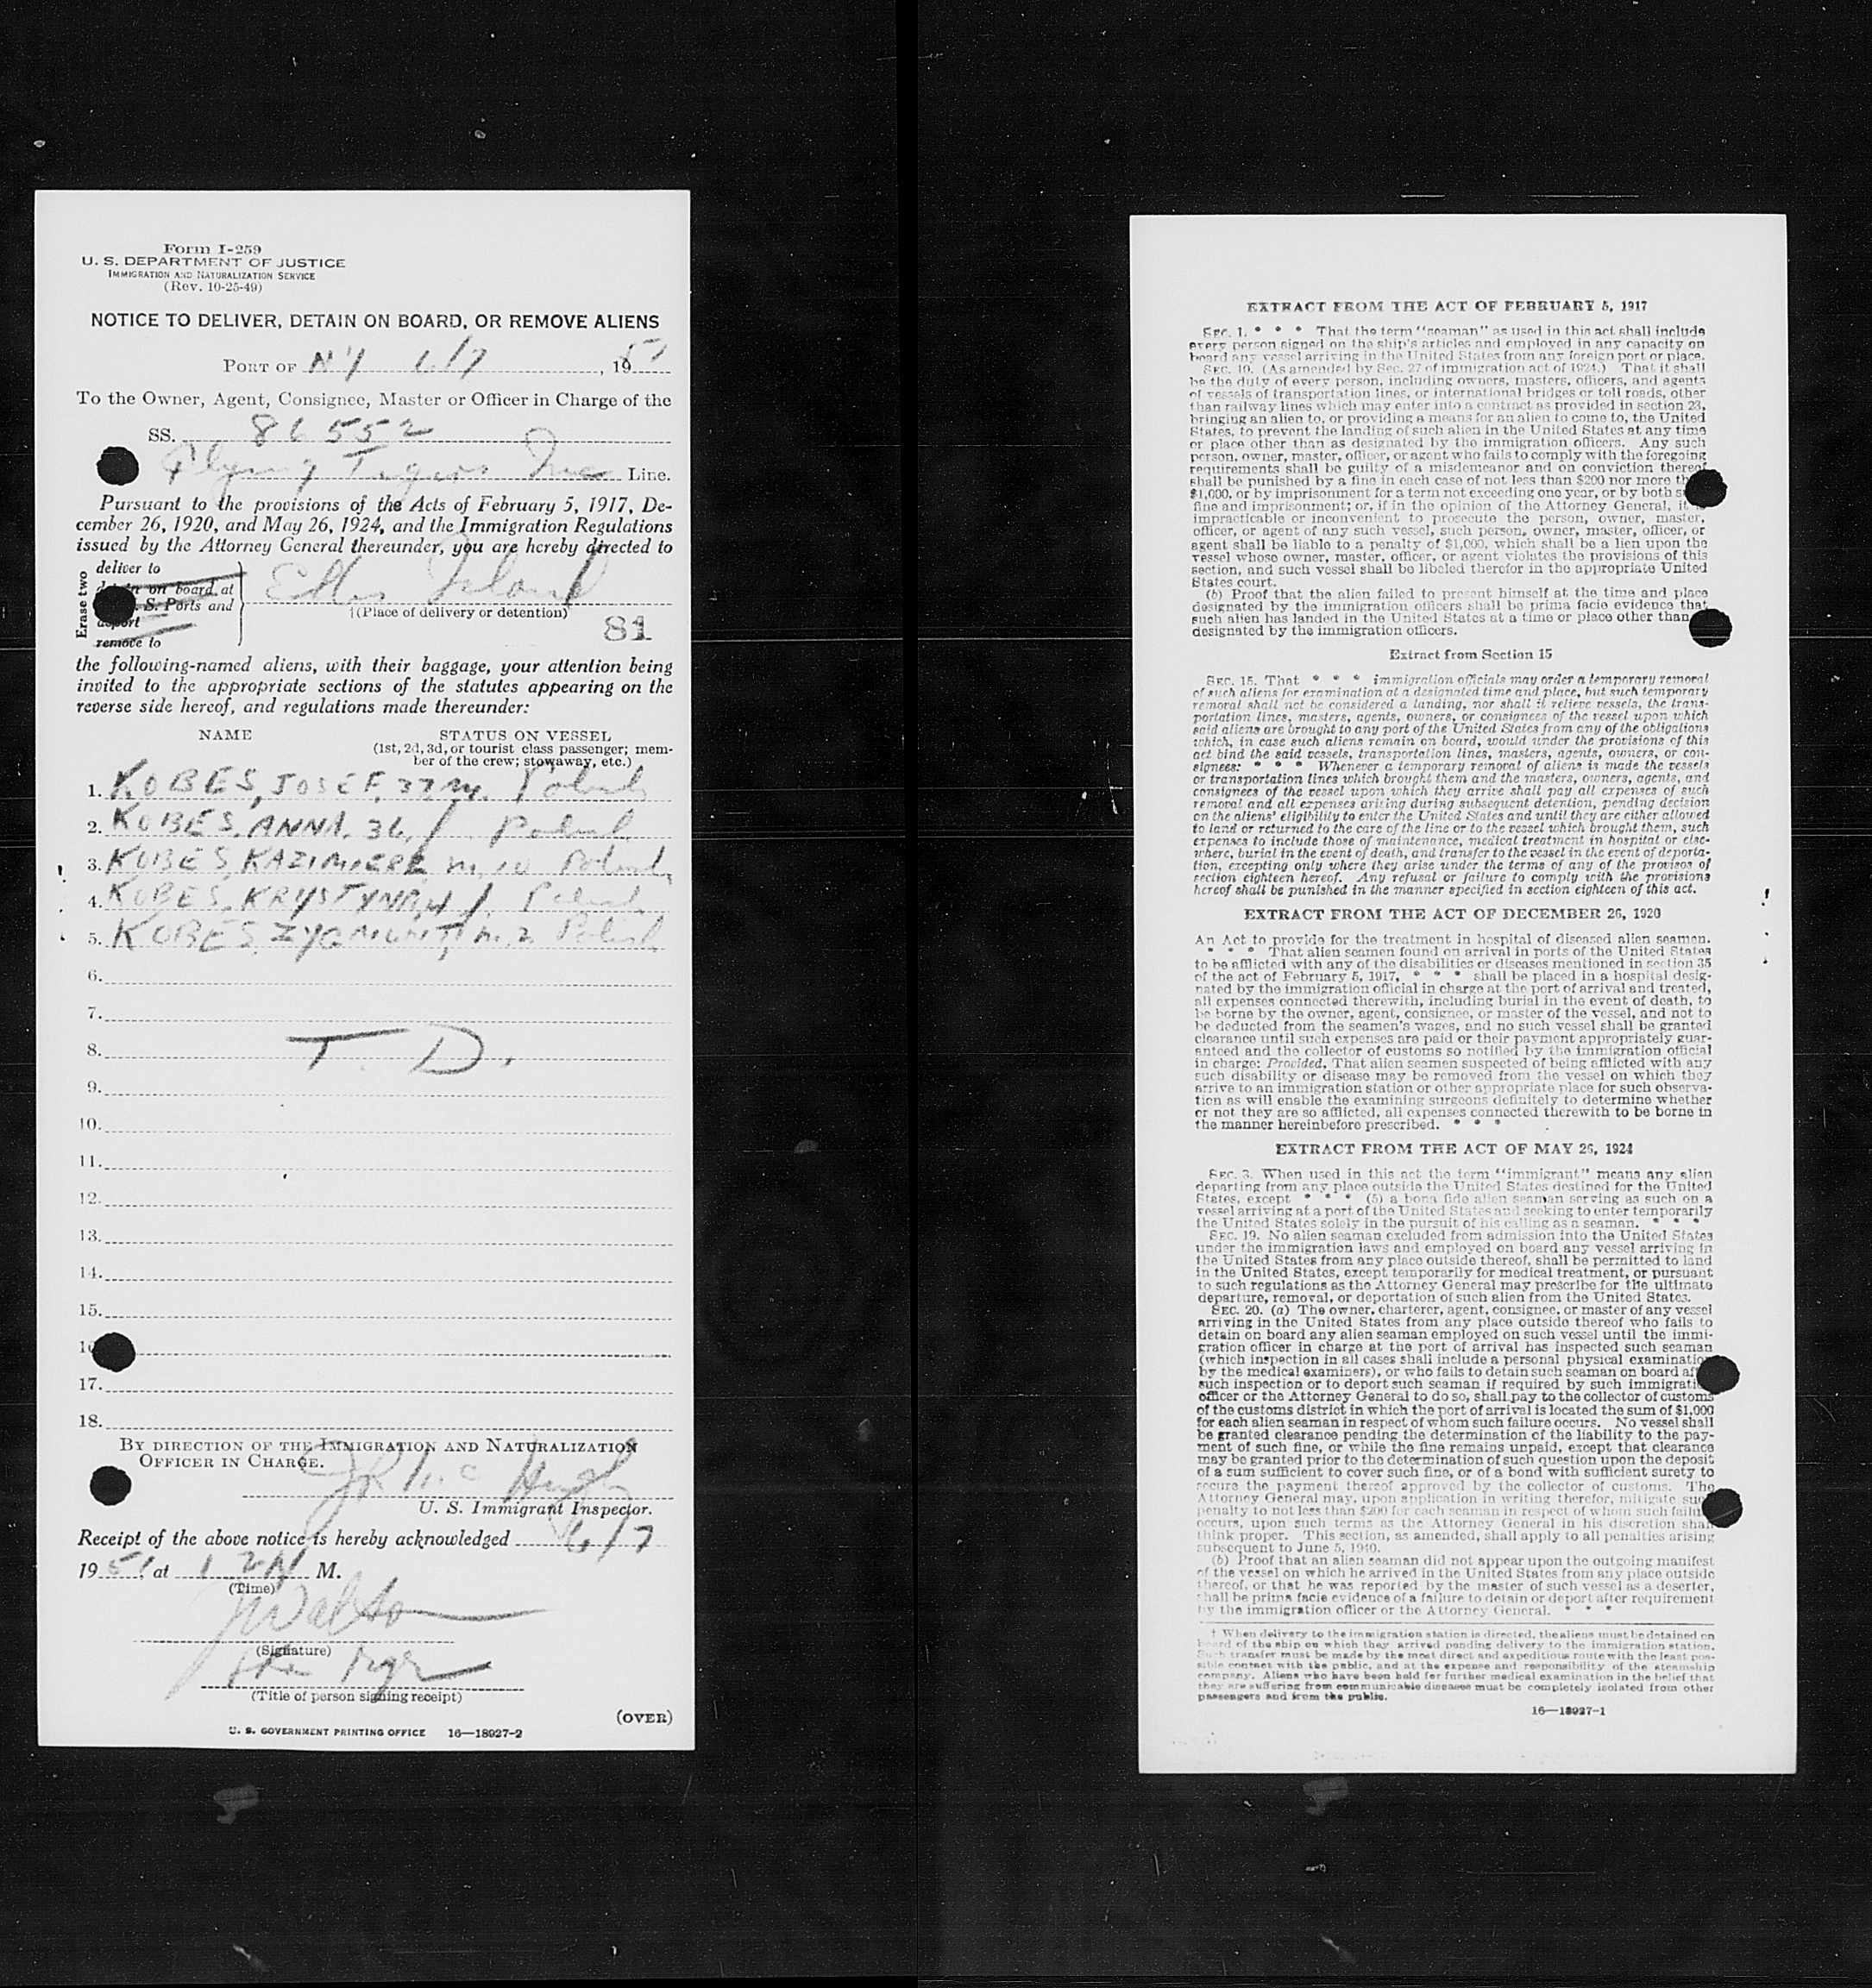 Form I-259
U. S. DEPARTMENT OF JUSTICE
IMMIGRATION AND NATURALIZATION SERVICE
(Rev. 10-25-49)
NOTICE TO DELIVER, DETAIN ON BOARD, OR REMOVE ALIENS
PORT OF NY 6/7, 1951
To the Owner, Agent, Consignee, Master or Officer in Charge of the
SS. 86552
Flying Tigers Inc Line.
Pursuant to the provisions of the Acts of February 5, 1917, De-
cember 26, 1920, and May 26, 1924, and the Immigration Regulations
issued by the Attorney General thereunder, you are hereby directed to
Erase two
deliver to
on board at
S. Ports and
remove to
Ellis Island
†(Place of delivery or detention)
81
the following-named aliens, with their baggage, your attention being
invited to the appropriate sections of the statutes appearing on the
reverse side hereof, and regulations made thereunder:
NAME STATUS ON VESSEL
(1st, 2d, 3d, or tourist class passenger; mem-
ber of the crew; stowaway, etc.)
1. KOBES, JOSEF, 37 M. Polish
2. KOBES, ANNA. 36, f. Polish
3. KOBES, KAZIMIERZ m. 10 Polish
4. KOBES, KRYSTYNA, 4 f. Polish
5. KOBES, ZYGMUNT, m. 2 Polish
6.
7.
8. T. D.
9.
10.
11.
12.
13.
14.
15.
17.
18.
BY DIRECTION OF THE IMMIGRATION AND NATURALIZATION
OFFICER IN CHARGE.
Mc Hugh
U. S. Immigrant Inspector.
Receipt of the above notice is hereby acknowledged 6/7
1951 at 12 N M.
(Time)
(Signature)
(Title of person signing receipt)
(OVER)
U. S. GOVERNMENT PRINTING OFFICE 16—18927-2
EXTRACT FROM THE ACT OF FEBRUARY 5, 1917
SEC. 1. * * * That the term "seaman" as used in this act shall include
every person signed on the ship's articles and employed in any capacity on
board any vessel arriving in the United States from any foreign port or place.
SEC. 10. (As amended by Sec. 27 of immigration act of 1924.) That it shall
be the duty of every person, including owners, masters, officers, and agents
of vessels of transportation lines, or international bridges or toll roads, other
than railway lines which may enter into a contract as provided in section 23,
bringing an alien to, or providing a means for an alien to come to, the United
States, to prevent the landing of such alien in the United States at any time
or place other than as designated by the immigration officers. Any such
person, owner, master, officer, or agent who fails to comply with the foregoing
requirements shall be guilty of a misdemeanor and on conviction thereof
shall be punished by a fine in each case of not less than $200 nor more
$1,000, or by imprisonment for a term not exceeding one year, or by both
fine and imprisonment; or, if in the opinion of the Attorney General, it is
impracticable or inconvenient to prosecute the person, owner, master,
officer, or agent of any such vessel, such person, owner, master, officer, or
agent shall be liable to a penalty of $1,000, which shall be a lien upon the
vessel whose owner, master, officer, or agent violates the provisions of this
section, and such vessel shall be libeled therefor in the appropriate United
States court.
(b) Proof that the alien failed to present himself at the time and place
designated by the immigration officers shall be prima facie evidence that
such alien has landed in the United States at a time or place other than
designated by the immigration officers.
Extract from Section 15
SEC. 15. That * * * immigration officials may order a temporary removal
of such aliens for examination at a designated time and place, but such temporary
removal shall not be considered a landing, nor shall it relieve vessels, the trans-
portation lines, masters, agents, owners, or consignees of the vessel upon which
said aliens are brought to any port of the United States from any of the obligations
which, in case such aliens remain on board, would under the provisions of this
act bind the said vessels, transportation lines, masters, agents, owners, or con-
signees: * * * Whenever a temporary removal of aliens is made the vessels
or transportation lines which brought them and the masters, owners, agents, and
consignees of the vessel upon which they arrive shall pay all expenses of such
removal and all expenses arising during subsequent detention, pending decision
on the aliens' eligibility to enter the United States and until they are either allowed
to land or returned to the care of the line or to the vessel which brought them, such
expenses to include those of maintenance, medical treatment in hospital or else-
where, burial in the event of death, and transfer to the vessel in the event of deporta-
tion, excepting only where they arise under the terms of any of the provisos of
section eighteen hereof. Any refusal or failure to comply with the provisions
hereof shall be punished in the manner specified in section eighteen of this act.
EXTRACT FROM THE ACT OF DECEMBER 26, 1920
An Act to provide for the treatment in hospital of diseased alien seamen.
* * * That alien seamen found on arrival in ports of the United States
to be afflicted with any of the disabilities or diseases mentioned in section 35
of the act of February 5, 1917, * * * shall be placed in a hospital desig-
nated by the immigration official in charge at the port of arrival and treated,
all expenses connected therewith, including burial in the event of death, to
be borne by the owner, agent, consignee, or master of the vessel, and not to
be deducted from the seamen's wages, and no such vessel shall be granted
clearance until such expenses are paid or their payment appropriately guar-
anteed and the collector of customs so notified by the immigration official
in charge: Provided, That alien seamen suspected of being afflicted with any
such disability or disease may be removed from the vessel on which they
arrive to an immigration station or other appropriate place for such observa-
tion as will enable the examining surgeons definitely to determine whether
or not they are so afflicted, all expenses connected therewith to be borne in
the manner hereinbefore prescribed. * * *
EXTRACT FROM THE ACT OF MAY 26, 1924
SEC. 3. When used in this act the term "immigrant" means any alien
departing from any place outside the United States destined for the United
States, except * * * (5) a bona fide alien seaman serving as such on a
vessel arriving at a port of the United States and seeking to enter temporarily
the United States solely in the pursuit of his calling as a seaman. * * *
SEC. 19. No alien seaman excluded from admission into the United States
under the immigration laws and employed on board any vessel arriving in
the United States from any place outside thereof, shall be permitted to land
in the United States, except temporarily for medical treatment, or pursuant
to such regulations as the Attorney General may prescribe for the ultimate
departure, removal, or deportation of such alien from the United States.
SEC. 20. (a) The owner, charterer, agent, consignee, or master of any vessel
arriving in the United States from any place outside thereof who fails to
detain on board any alien seaman employed on such vessel until the immi-
gration officer in charge at the port of arrival has inspected such seaman
(which inspection in all cases shall include a personal physical examination
by the medical examiners), or who fails to detain such seaman on board
such inspection or to deport such seaman if required by such
officer or the Attorney General to do so, shall pay to the collector of customs
of the customs district in which the port of arrival is located the sum of $1,000
for each alien seaman in respect of whom such failure occurs. No vessel shall
be granted clearance pending the determination of the liability to the pay-
ment of such fine, or while the fine remains unpaid, except that clearance
may be granted prior to the determination of such question upon the deposit
of a sum sufficient to cover such fine, or of a bond with sufficient surety to
secure the payment thereof approved by the collector of customs. The
Attorney General may, upon application in writing therefor, mitigate such
penalty to not less than $200 for each seaman in respect of whom such failure
occurs, upon such terms as the Attorney General in his discretion shall
think proper. This section, as amended, shall apply to all penalties arising
subsequent to June 5, 1940.
(b) Proof that an alien seaman did not appear upon the outgoing manifest
of the vessel on which he arrived in the United States from any place outside
thereof, or that he was reported by the master of such vessel as a deserter,
shall be prima facie evidence of a failure to detain or deport after requirement
by the immigration officer or the Attorney General. * * *
† When delivery to the immigration station is directed, the aliens must be detained on
board of the ship on which they arrived pending delivery to the immigration station.
Such transfer must be made by the most direct and expeditious route with the least pos-
sible contact with the public, and at the expense and responsibility of the steamship
company. Aliens who have been held for further medical examination in the belief that
they are suffering from communicable diseases must be completely isolated from other
passengers and from the public.
16—18927-1